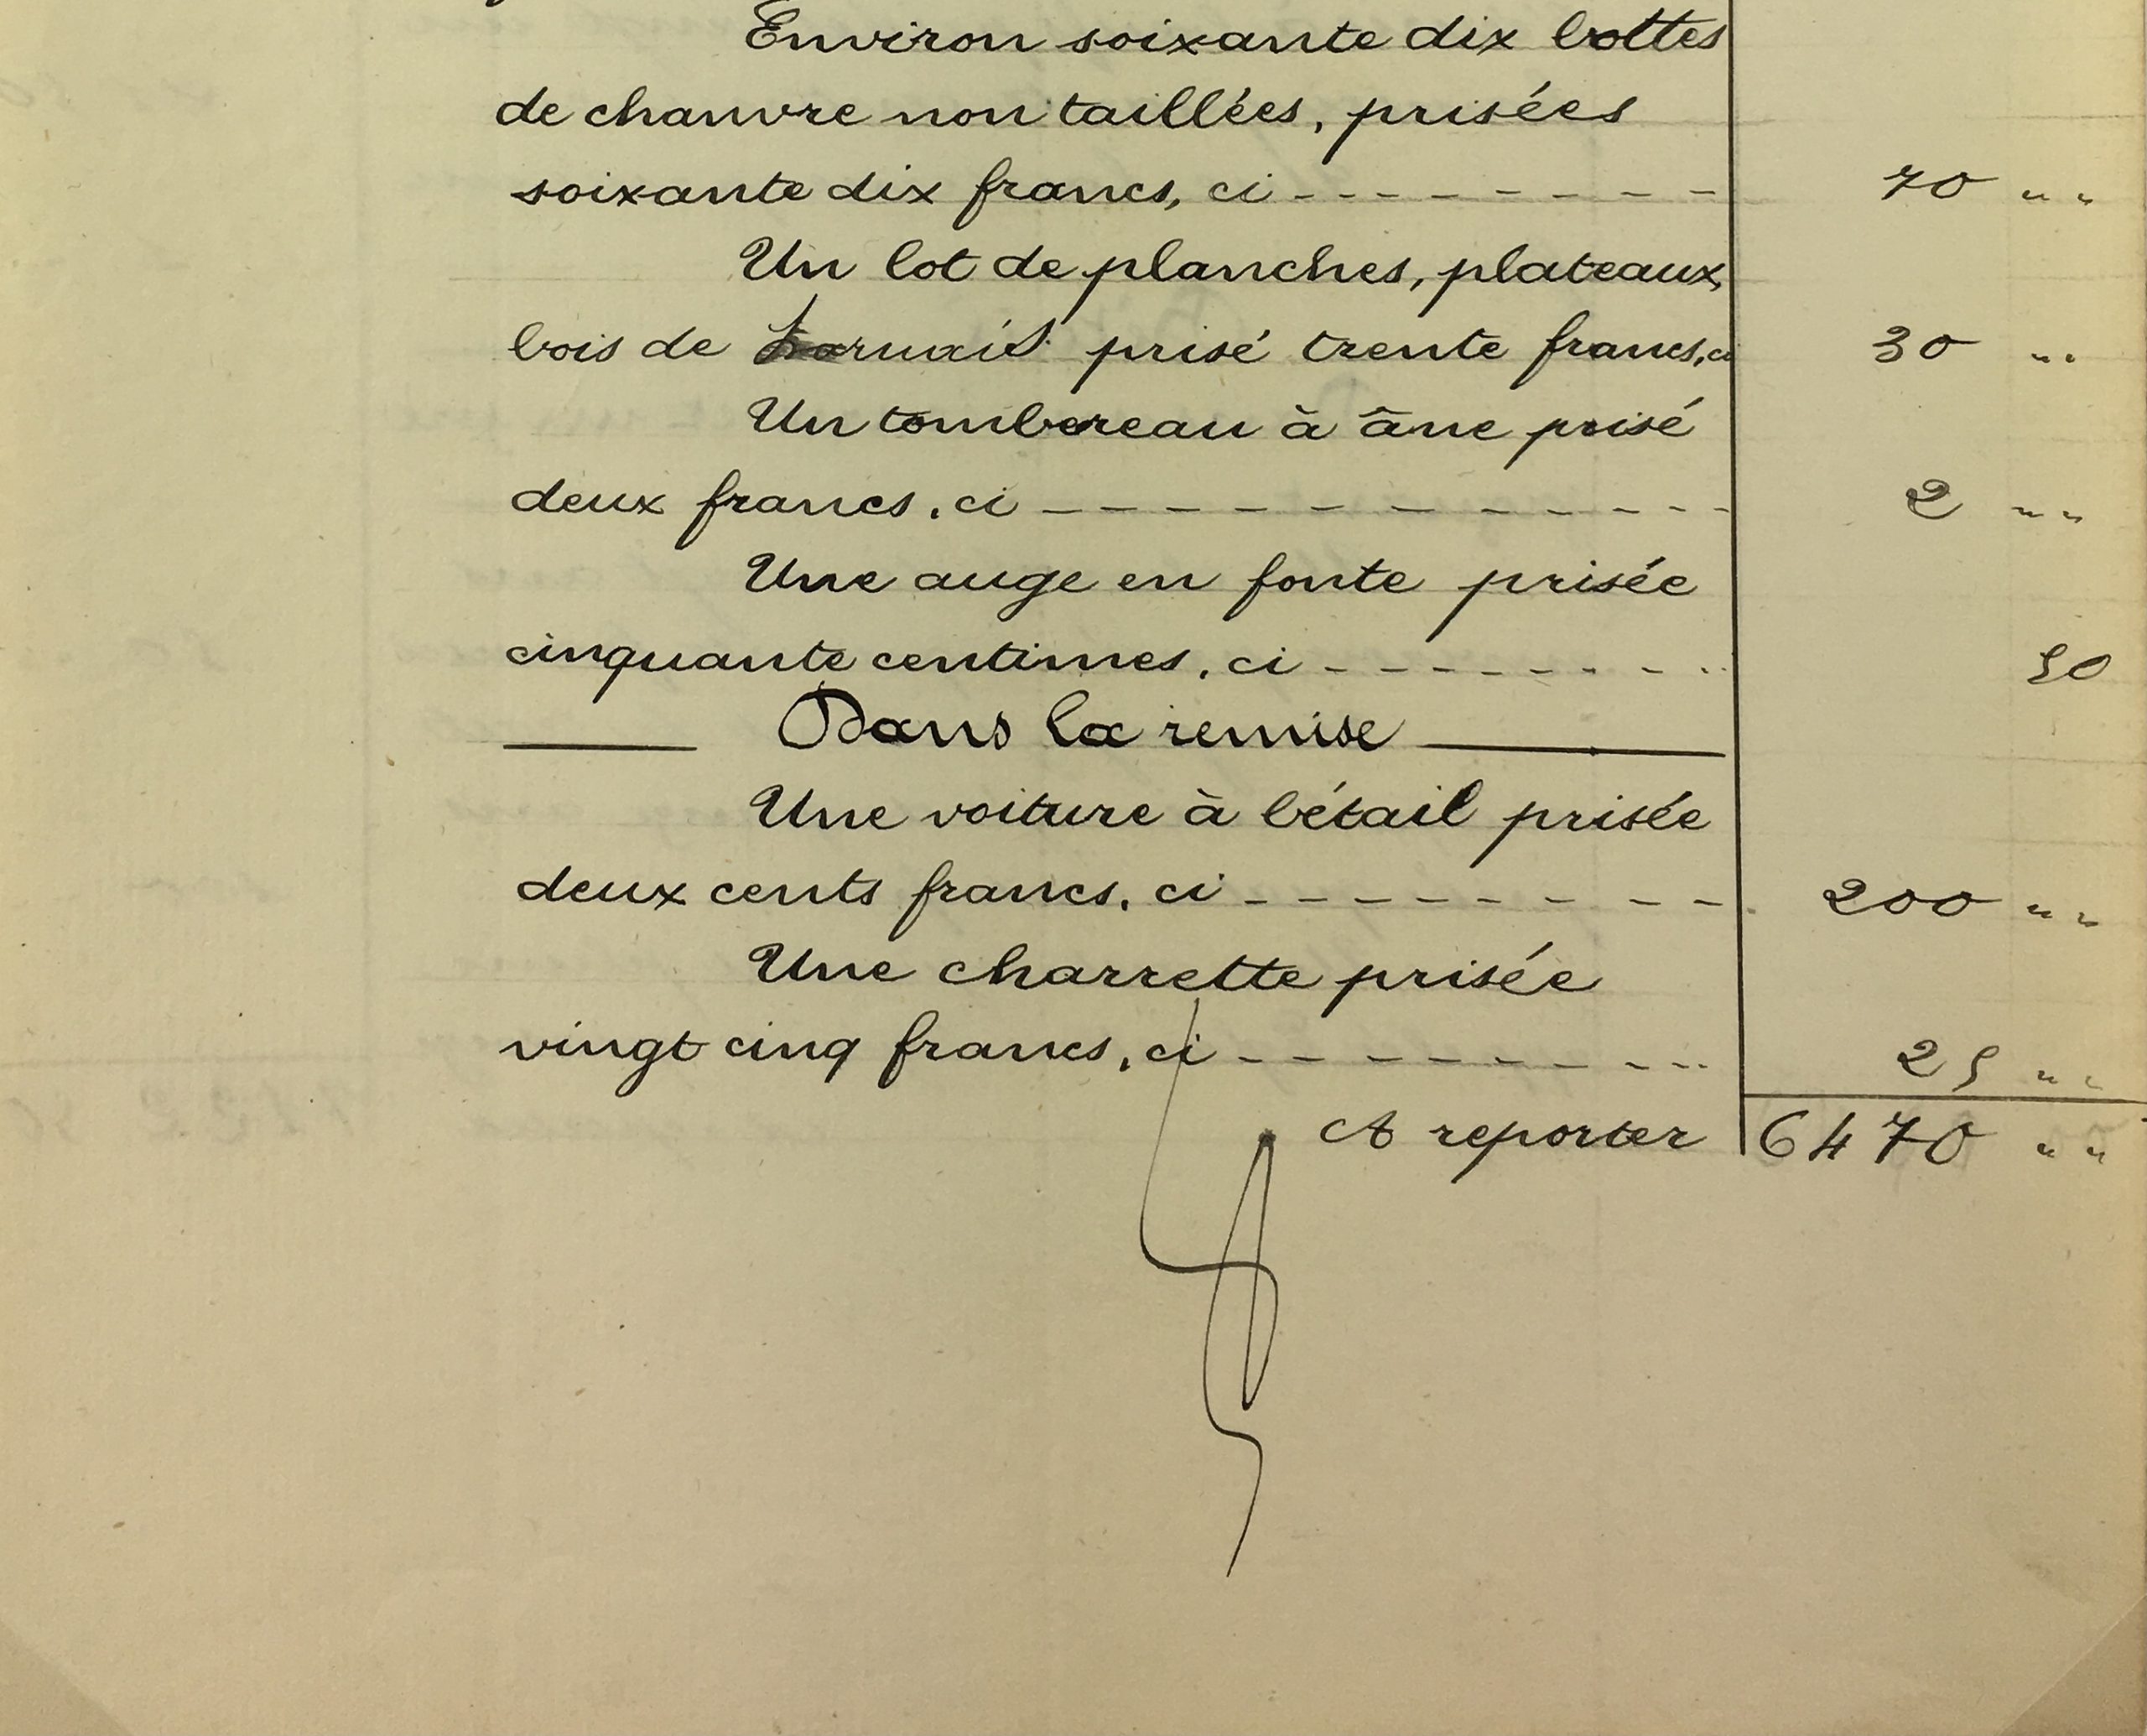 Environ soixante dix bottes
de chanvre non taillées, prisées
soixante dix francs, ci - - - - - - - - 70 " "
Un lot de planches, plateaux,
bois de prisé trente francs, ci 30 " "
Un tombereau à âne prisé
deux francs, ci - - - - - - - - - - 2 " "
Une auge en fonte prisée
cinquante centimes, ci - - - - - - - - 50
Dans la remise
Une voiture à bétail prisée
deux cents francs, ci - - - - - - - - - 200 " "
Une charrette prisée
vingt cinq francs, ci - - - - - - - - - 25 " "
A reporter 6470 " "